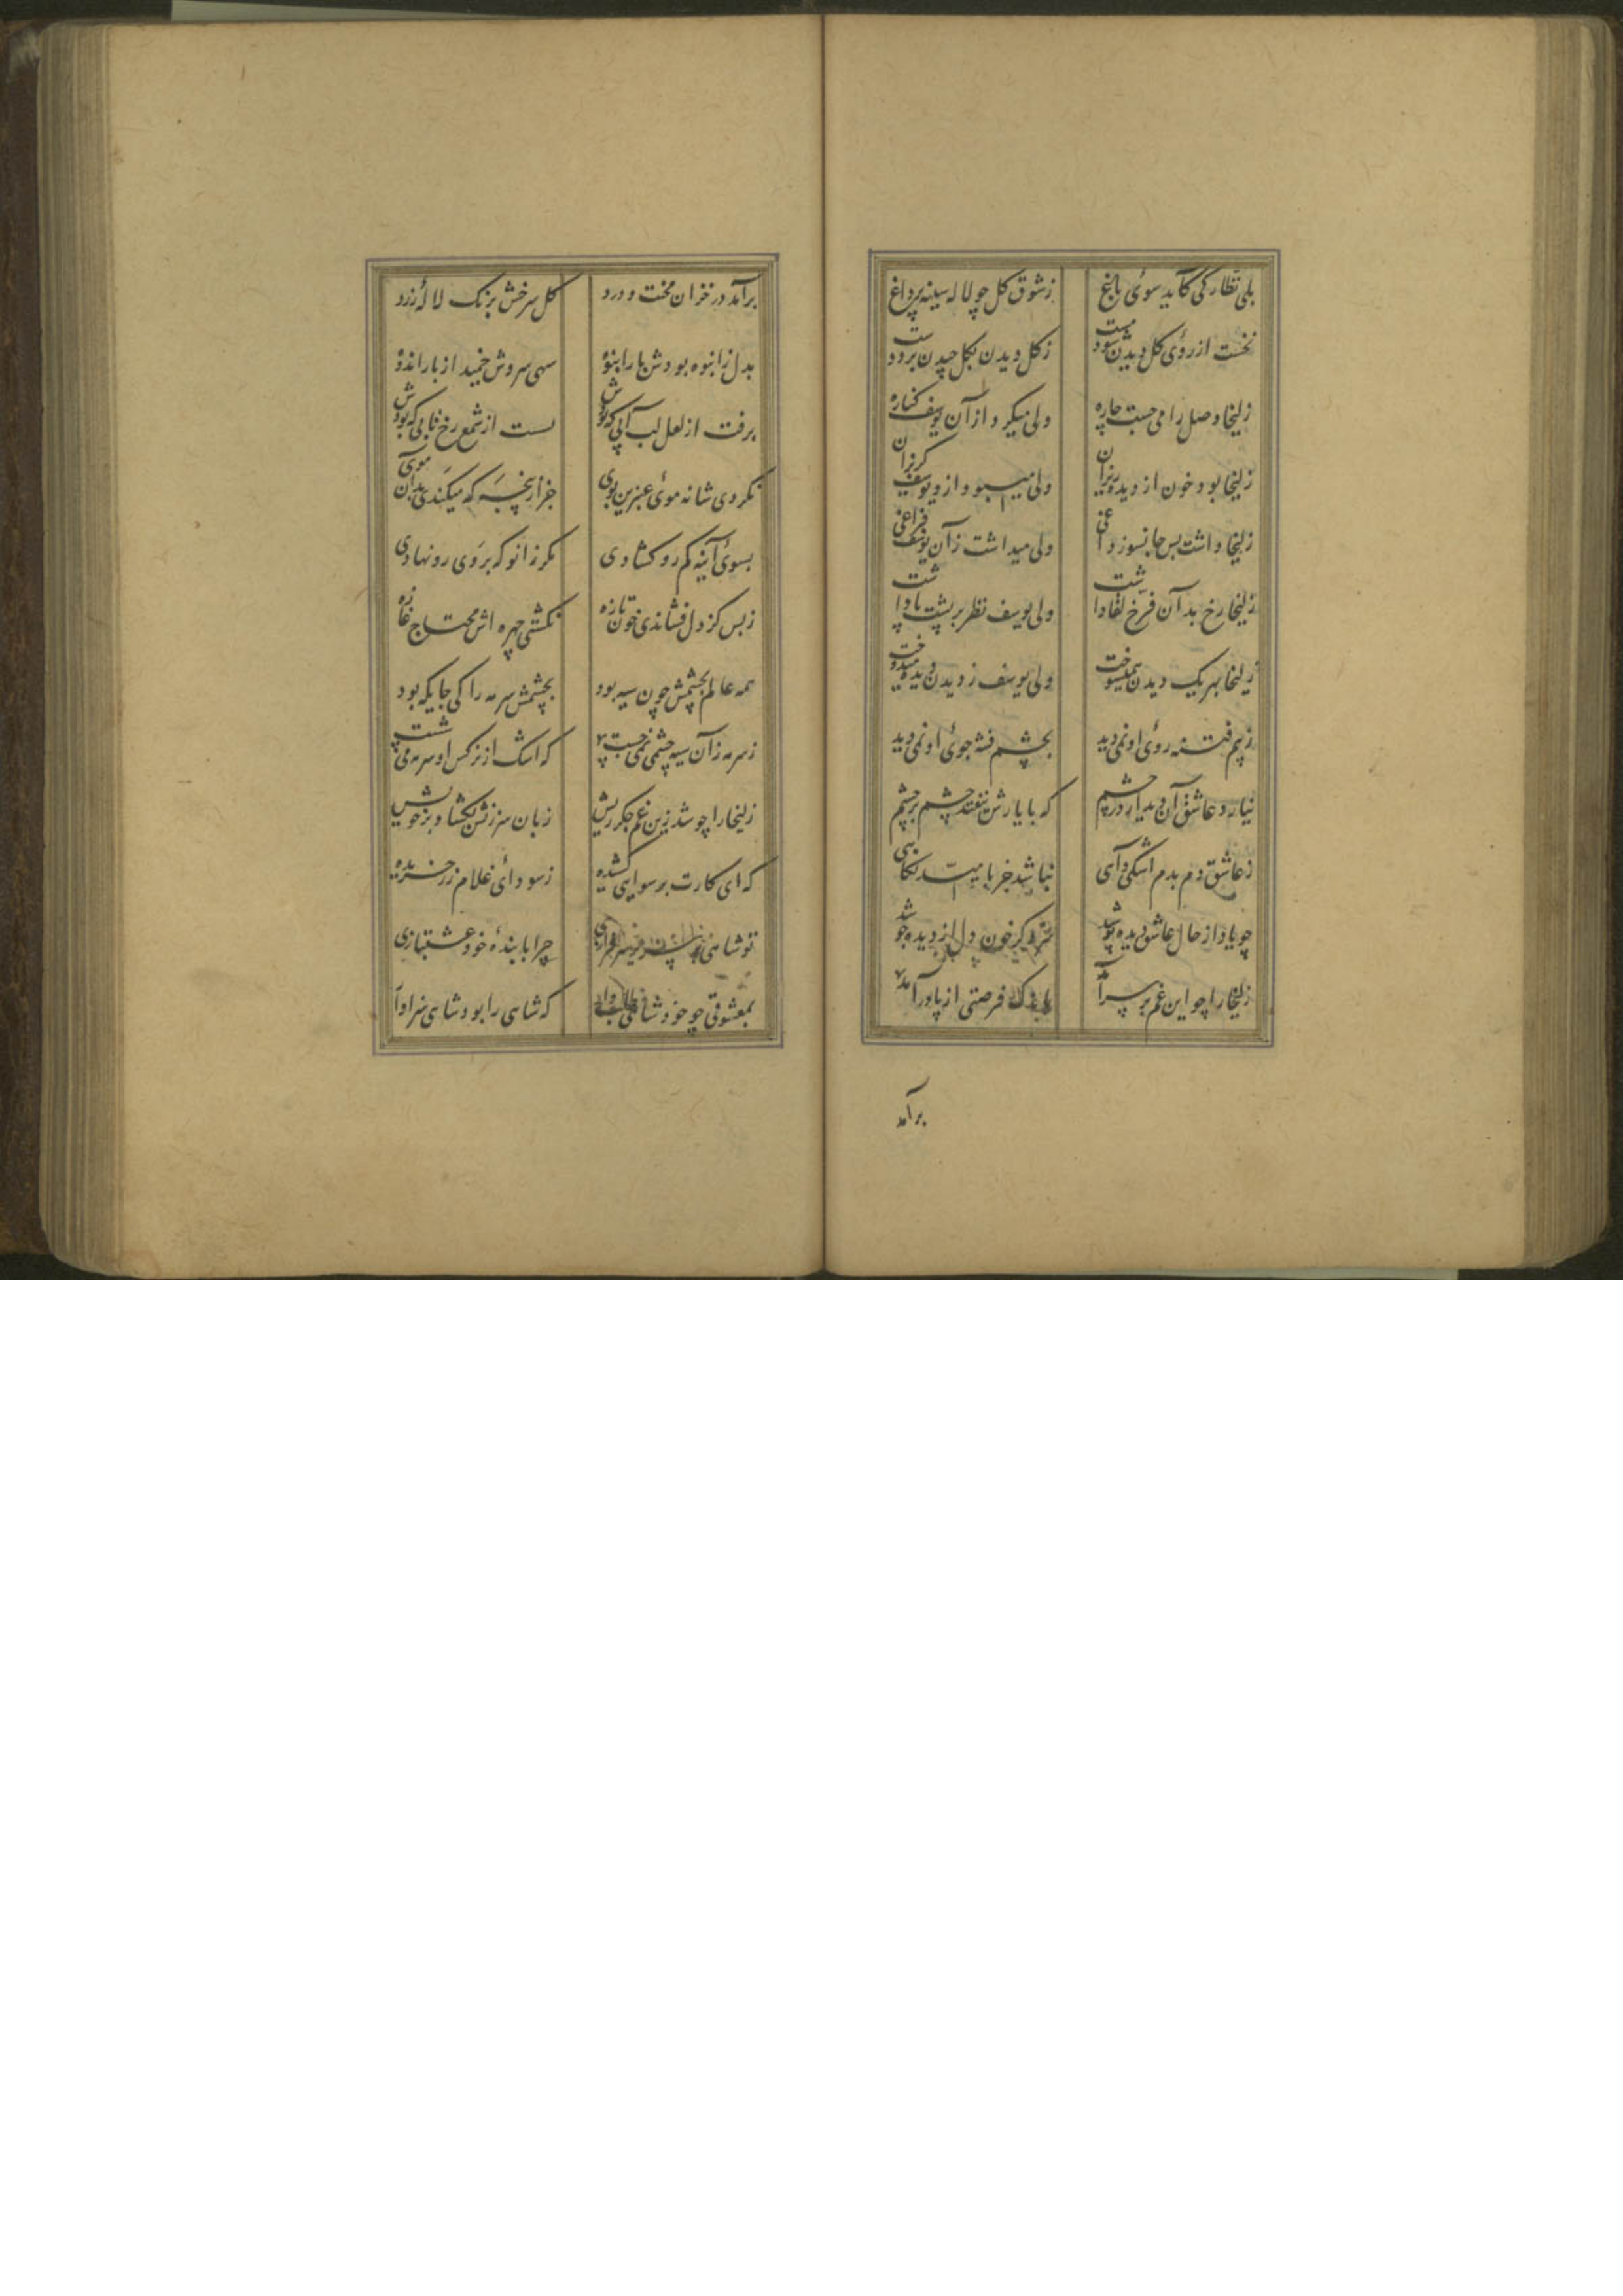 بلی نظارگی کآید سوئی باغ
ز شوق گل چو لاله سینه پرداغ
نخست از روئی گل دیدن شود مست
ز گل دیدن بگل چیدن برد دست
زلیخا وصل را می جست چاره
ولی میکرد از آن یوسف کناره
زلیخا بود خون از دیده ریزان
ولی میبود ازو یوسف گریزان
زلیخا داشت بس جانسوز داغی
ولی میداشت زآن یوسف فراغی
زلیخا رخ بدآن فرخ لقا داشت
ولی یوسف نظر بر پشت پا داشت
زلیخا بهر یک دیدن همیسوخت
ولی یوسف ز دیدن دیده میدوخت
ز بیم فتنه روئی او نمی دید
بچشم فتنه جوئی او نمی دید
نیارد عاشق آن دیدار در چشم
که با یارش نیفتد چشم بر چشم
ز عاشق دم بدم اشکی و آهی
نباشد جز بامید نگاهی
چو یار از حال عاشق دیده پوشد
سزد کز خون دل از دیده جوشد
زلیخا را چو این غم بر سر آمد
باندک فرصتی از پا در آمد
برآمد
برآمد در خزان محنت و درد
گل سرخش برنگ لالهٔ زرد
بدل ز اندوه بودش بار انبوه
سهی سروش خمید از بار اندوه
برفت از لعل لب آبی که بودش
نشست از شمع رخ تابی که بودش
نکردی شانه موئی عنبرین بوی
جز از پنجه که میکندی بدآن موی
بسوئی آئینه کم رو گشادی
مگر زانو که بر وی رو نهادی
ز بس کز دل فشاندی خون تازه
نگشتی چهره اش محتاج غازه
همه عالم بچشمش چون سیه بود
بچشمش سرمه را کی جایگه بود
ز سرمه زآن سیه چشمی نمی جست
که اشک از نرگس او سرمه می شست
زلیخا را چو شد زین غم جگر ریش
زبان سرزنش بگشاد بر خویش
که ای کارت برسوایی کشیده
ز سودائی غلام زر خریده
تو شاهی بر سریر سرفرازی
چرا با بندهٔ خود عشقبازی
بمعشوقی چو خود شاهی طلب دار
که شاهی را بود شاهی سزاوار